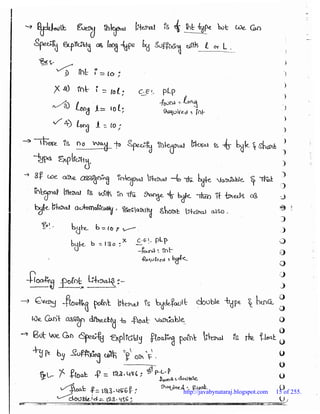 → By default Every Integral literal is of int type but we can
Specify Explicitly as long type by Suffixing with l or L.
Ex:-
✓1) int i = 10;
X 2) int i = 10l; C.E:- PLP
found: long
Required: int
✓3) long l = 10l;
✓4) long l = 10;
→ There is no way to Specify Integral literal is of byte & short
type Explicitly.
→ If we are assigning Integral literal to the byte variable & that
Integral literal is with in the range of byte then it treats as
byte literal automatically. Similarly short literal also.
Ex:- byte b = 10; ✓
byte b = 130; X C.E:- PLP
found: int
Required: byte
floating point literals:-
→ Every floating point literal is by default double type & hence
we Can't assign directly to float variable.
→ But we Can Specify Explicitly floating point literal is the float
type by Suffixing with 'f' or 'F'.
Ex:- X float f = 123.456; P.L.P
found: double
Required: float
✓float f = 123.456f;
✓double d = 123.456;
http://javabynataraj.blogspot.com 15 of 255.